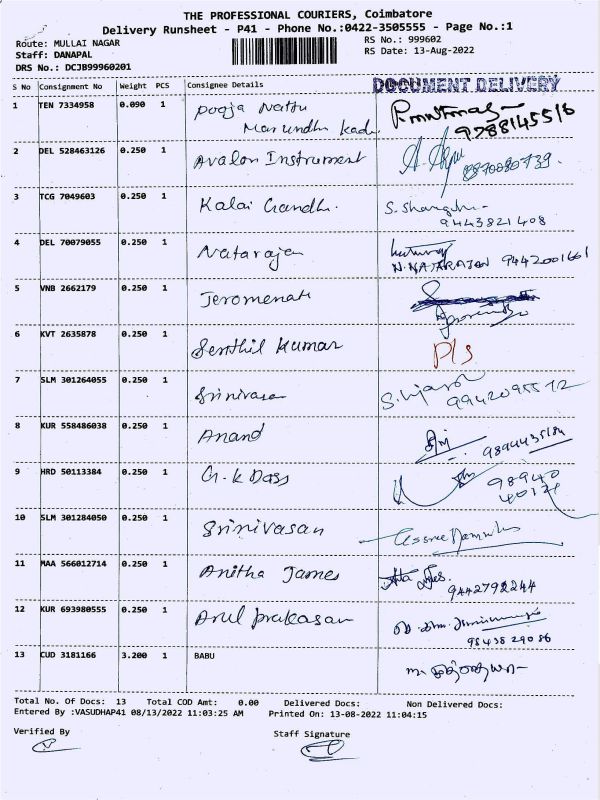 THE PROFESSIONAL COURIERS, Coimbatore
Delivery Runsheet - P41 - Phone No.:0422-3505555 - Page No.:1
Route: MULLAI NAGAR
RS No.: 999602
Staff: DANAPAL
RS Date: 13-Aug-2022
DRS No.: DCJB99960201
S No Consignment No Weight PCS Consignee Details DOCUMENT DELIVERY
1 TEN 7334958 0.090 1 Pooja Nattu
Marundhu Kadi
9788145516
2 DEL 528463126 0.250 1 Avalon Instrument 8870080739.
3 TCG 7049603 0.250 1 Kalai Gandhi.
9443821408
4 DEL 70079055 0.250 1 Natarajan
N.NATARAJAN 9442001661
5 VNB 2662179 0.250 1 Jeromenath
6 KVT 2635878 0.250 1 Senthil Kumar Pls
7 SLM 301264055 0.250 1 Srinivasan
9942095512
8 KUR 558486038 0.250 1 Anand
9894435184
9 HRD 50113384 0.250 1 G.K Dass 98940
10 SLM 301284050 0.250 1 Srinivasan
11 MAA 566012714 0.250 1 Anitha James
9442792244
12 KUR 693980555 0.250 1 Arul Prakasan
9843829086
13 CUD 3181166 3.200 1 BABU
Total No. Of Docs: 13 Total COD Amt: 0.00 Delivered Docs: Non Delivered Docs:
Entered By :VASUDHAP41 08/13/2022 11:03:25 AM Printed On: 13-08-2022 11:04:15
Verified By Staff Signature